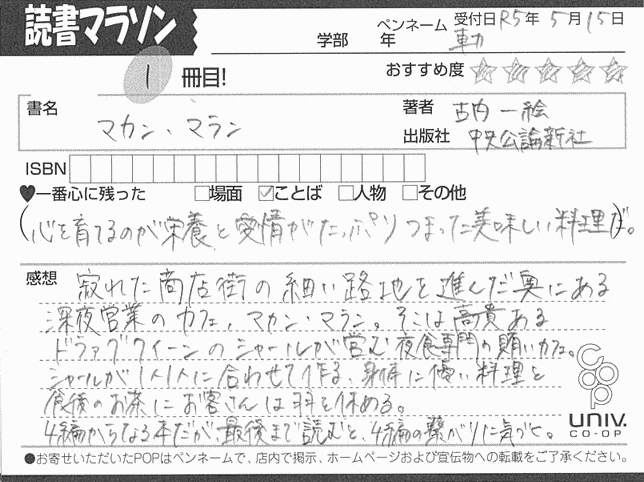 読書マラソン
学部 年 ペンネーム 受付日 R5年 5月 15日
1 冊目! おすすめ度 ☆☆☆☆☆
書名 マカン・マラン 著者 古内 一絵
出版社 中央公論新社
ISBN
♥一番心に残った □場面 ☑ことば □人物 □その他
(心を育てるのが栄養と愛情がたっぷりつまった美味しい料理だ。)
感想 寂れた商店街の細い路地を進んだ奥にある
深夜営業のカフェ、マカン・マラン。そこは高貴ある
ドラァグクイーンのシャールが営む夜食専門の賄いカフェ。
シャールが1人1人に合わせて作る、身体に優しい料理と
食後のお茶にお客さんは羽を休める。
4編からなる本だが、最後まで読むと、4編の繋がりに気づく。
coop
UNIV.
CO-OP
●お寄せいただいたPOPはペンネームで、店内で掲示、ホームページおよび宣伝物への転載をご了承ください。